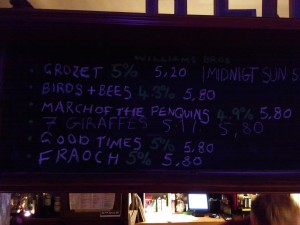 WILLIAMS BROS
GROZET 5% 5,20 | MIDNIGT SUN 5
BIRDS + BEES 4.3% 5,80
MARCH OF THE PENGUINS 4.9% 5,80
7 GIRAFFES 5,80
GOOD TIMES 5% 5,80
FRAOCH 5% 5,80